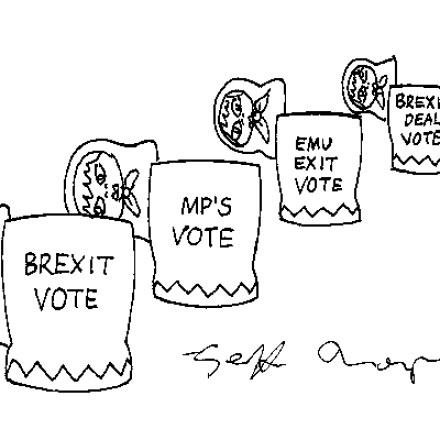 BREXIT
VOTE
MP'S
VOTE
EMU
EXIT
VOTE
BREXI
DEAL
VOTE